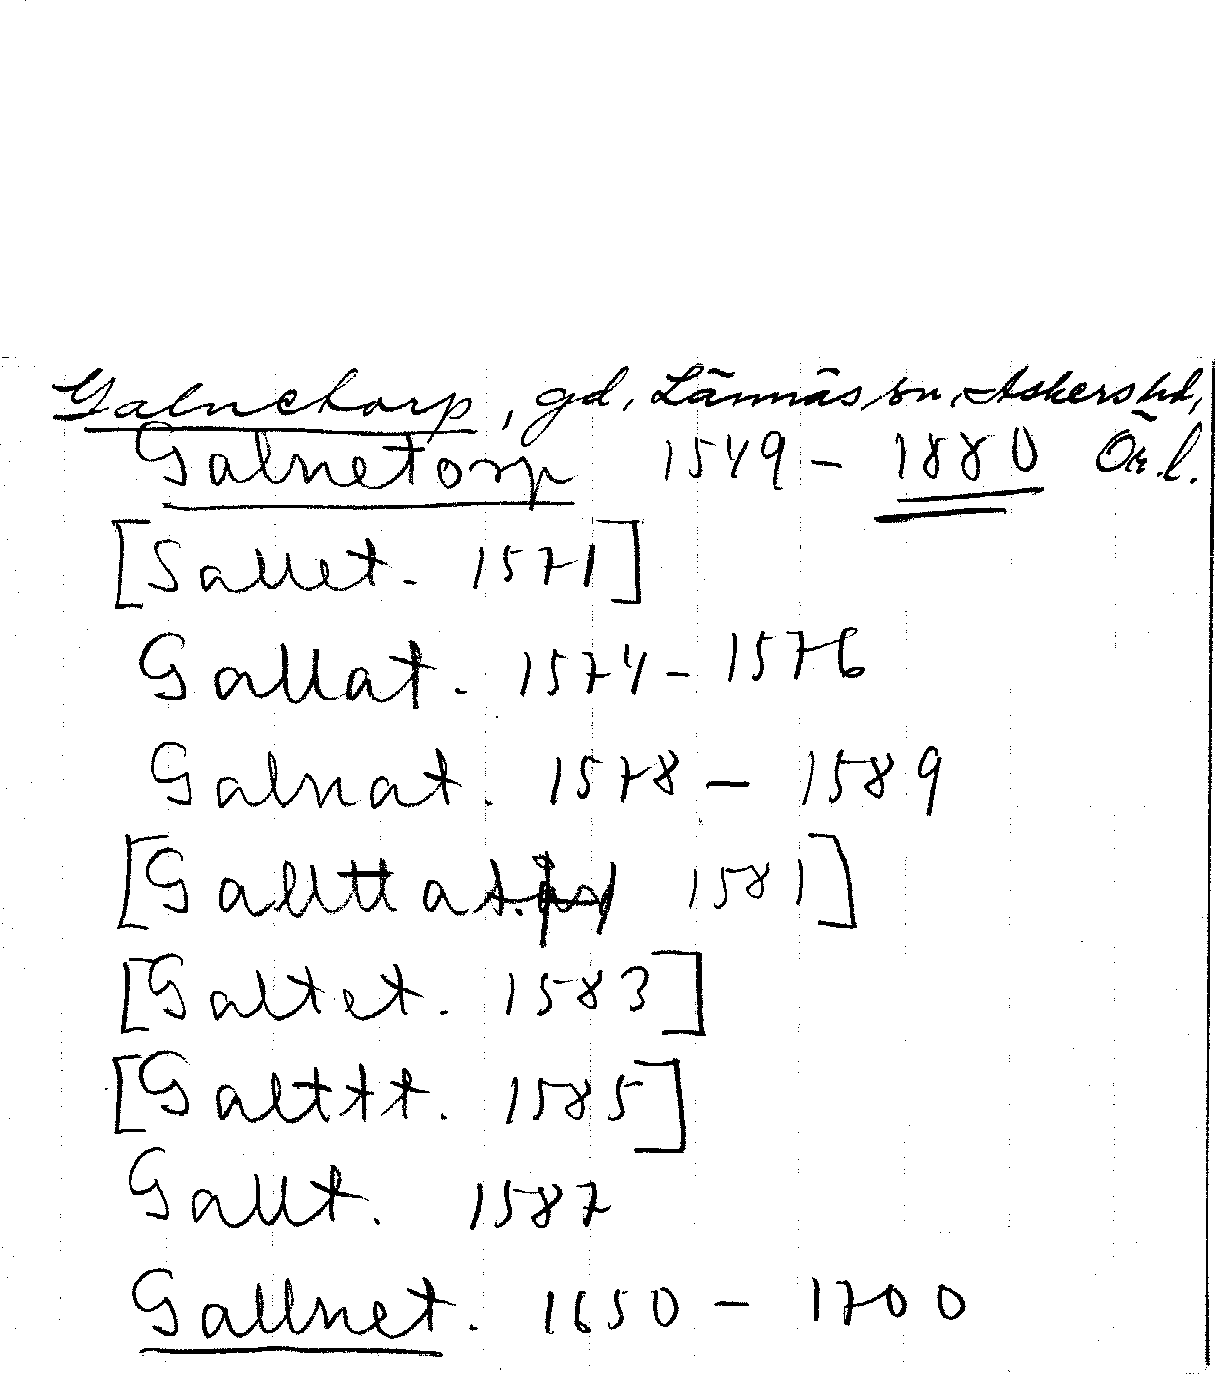 Galnetorp, gd, Lännäs sn, Askers hd,
Galnetorp 1549 – 1880 Ör. l.
[Sallet. 1571]
Gallat. 1574 – 1576
Galnat. 1578 – 1589
[Gallttat. 1581]
[Galtet. 1583]
[Galttt. 1585]
Gallt. 1587
Gallnet. 1650 – 1700